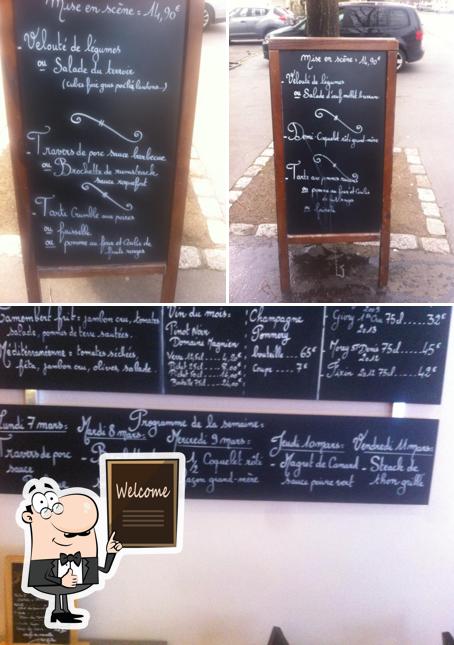 Mise en scène = 14,90€
- Velouté de légumes
ou Salade du terroir
- Travers de porc sauce barbecue
ou Brochette de rumsteack
sauce roquefort
- Tarte Crumble aux poires
ou faisselle
ou pomme au four et Coulis de
fruits rouges
Mise en scène = 14,90€
- Velouté de légumes
ou Salade d'oeuf mollet
- Demi-Coquelet rôti grand-mère
- Tarte aux pommes
ou pomme au four et Coulis
ou faisselle
Camembert frit: jambon cru, tomates
salade, pommes de terre sautées.
Méditerranéenne = tomates séchées,
féta, jambon cru, olives, salade.
Vin du mois:
Pinot Noir
Domaine Magnien
Verre 12,5cl
Bouteille 75cl
Champagne
Pommery
bouteille 65€
Coupe 7€
Givry 1er Cru 75cl 32€
2013
Morey St Denis 75cl 45€
Fixin 2012 75cl 42€
Programme de la semaine:
Lundi 7 mars:
Travers de porc
sauce
Mardi 8 mars:
Mercredi 9 mars:
Coquelet rôti
façon grand-mère
Jeudi 10 mars:
- Magret de Canard
sauce poivre vert
Vendredi 11 mars:
- Steack de
thon grillé
Welcome